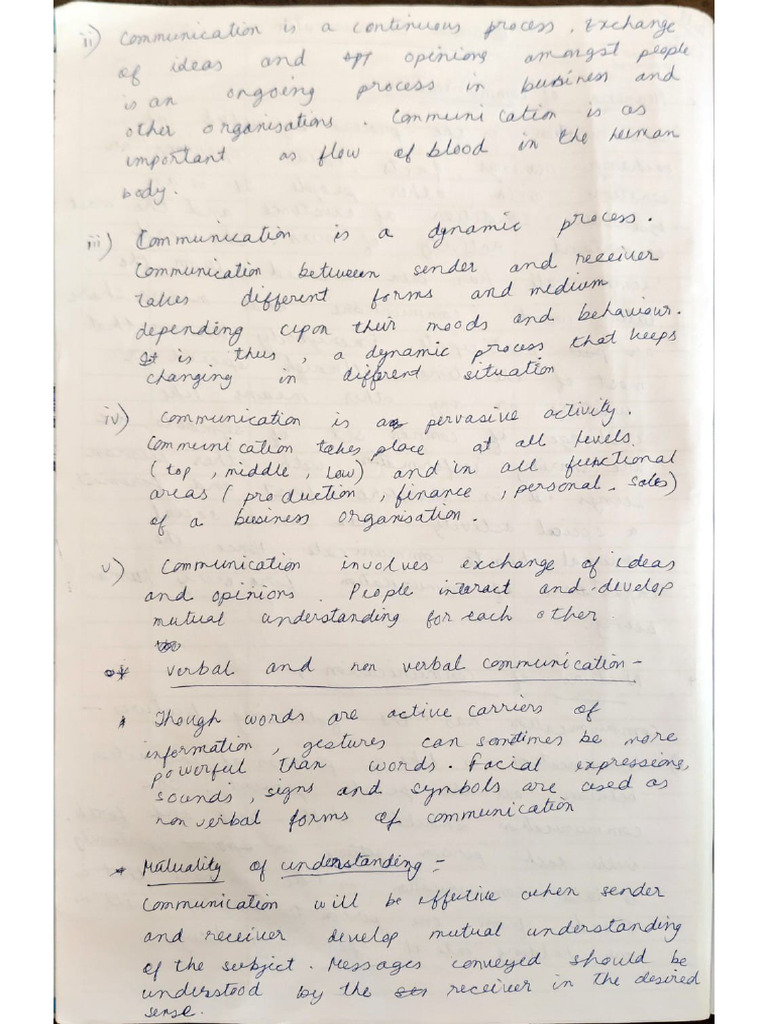 ii) Communication is a continuous process. Exchange
of ideas and opinions amongst people
is an ongoing process in business and
other organisations. Communication is as
important as flow of blood in the human
body.
iii) Communication is a dynamic process.
Communication between sender and receiver
takes different forms and medium
depending upon their moods and behaviour.
It is, thus, a dynamic process that keeps
changing in different situation
iv) Communication is a pervasive activity.
Communication takes place at all levels
(top, middle, low) and in all functional
areas (production, finance, personal, sales)
of a business organisation.
v) Communication involves exchange of ideas
and opinions. People interact and develop
mutual understanding for each other
* Verbal and non verbal communication -
Though words are active carriers of
information, gestures can sometimes be more
powerful than words. Facial expressions,
sounds, signs and symbols are used as
non verbal forms of communication
* Mutuality of understanding :-
Communication will be effective when sender
and receiver develop mutual understanding
of the subject. Messages conveyed should be
understood by the receiver in the desired
sense.